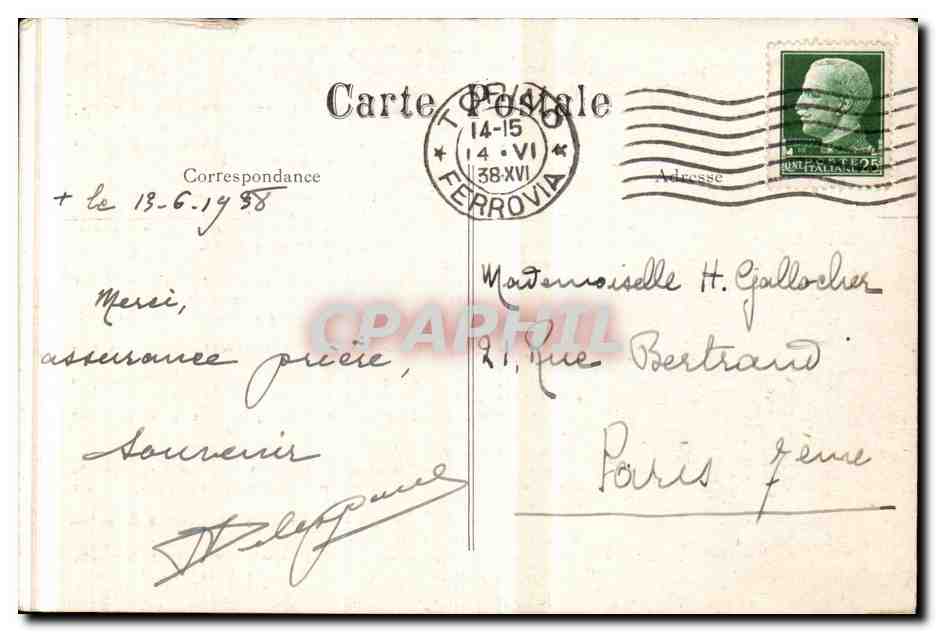 Carte Postale
TORINO
14-15
14·VI
38·XVI
FERROVIA
POSTE
ITALIANE
25
Correspondance
Adresse
+ le 13-6-1938
Merci,
assurance prière,
Souvenir
Mademoiselle H. Gallocher
21, Rue Bertrand
Paris 7ème
CPAPHIL